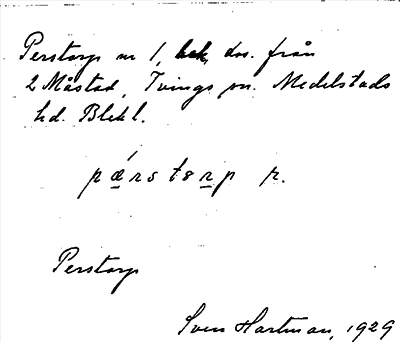 Perstorp nr 1, hek, dos. från
2 Måstad, Tvings sn. Medelstads
hd. Blekl.
pǽrstɵrp r.
Perstorp
Sven Hartman, 1929